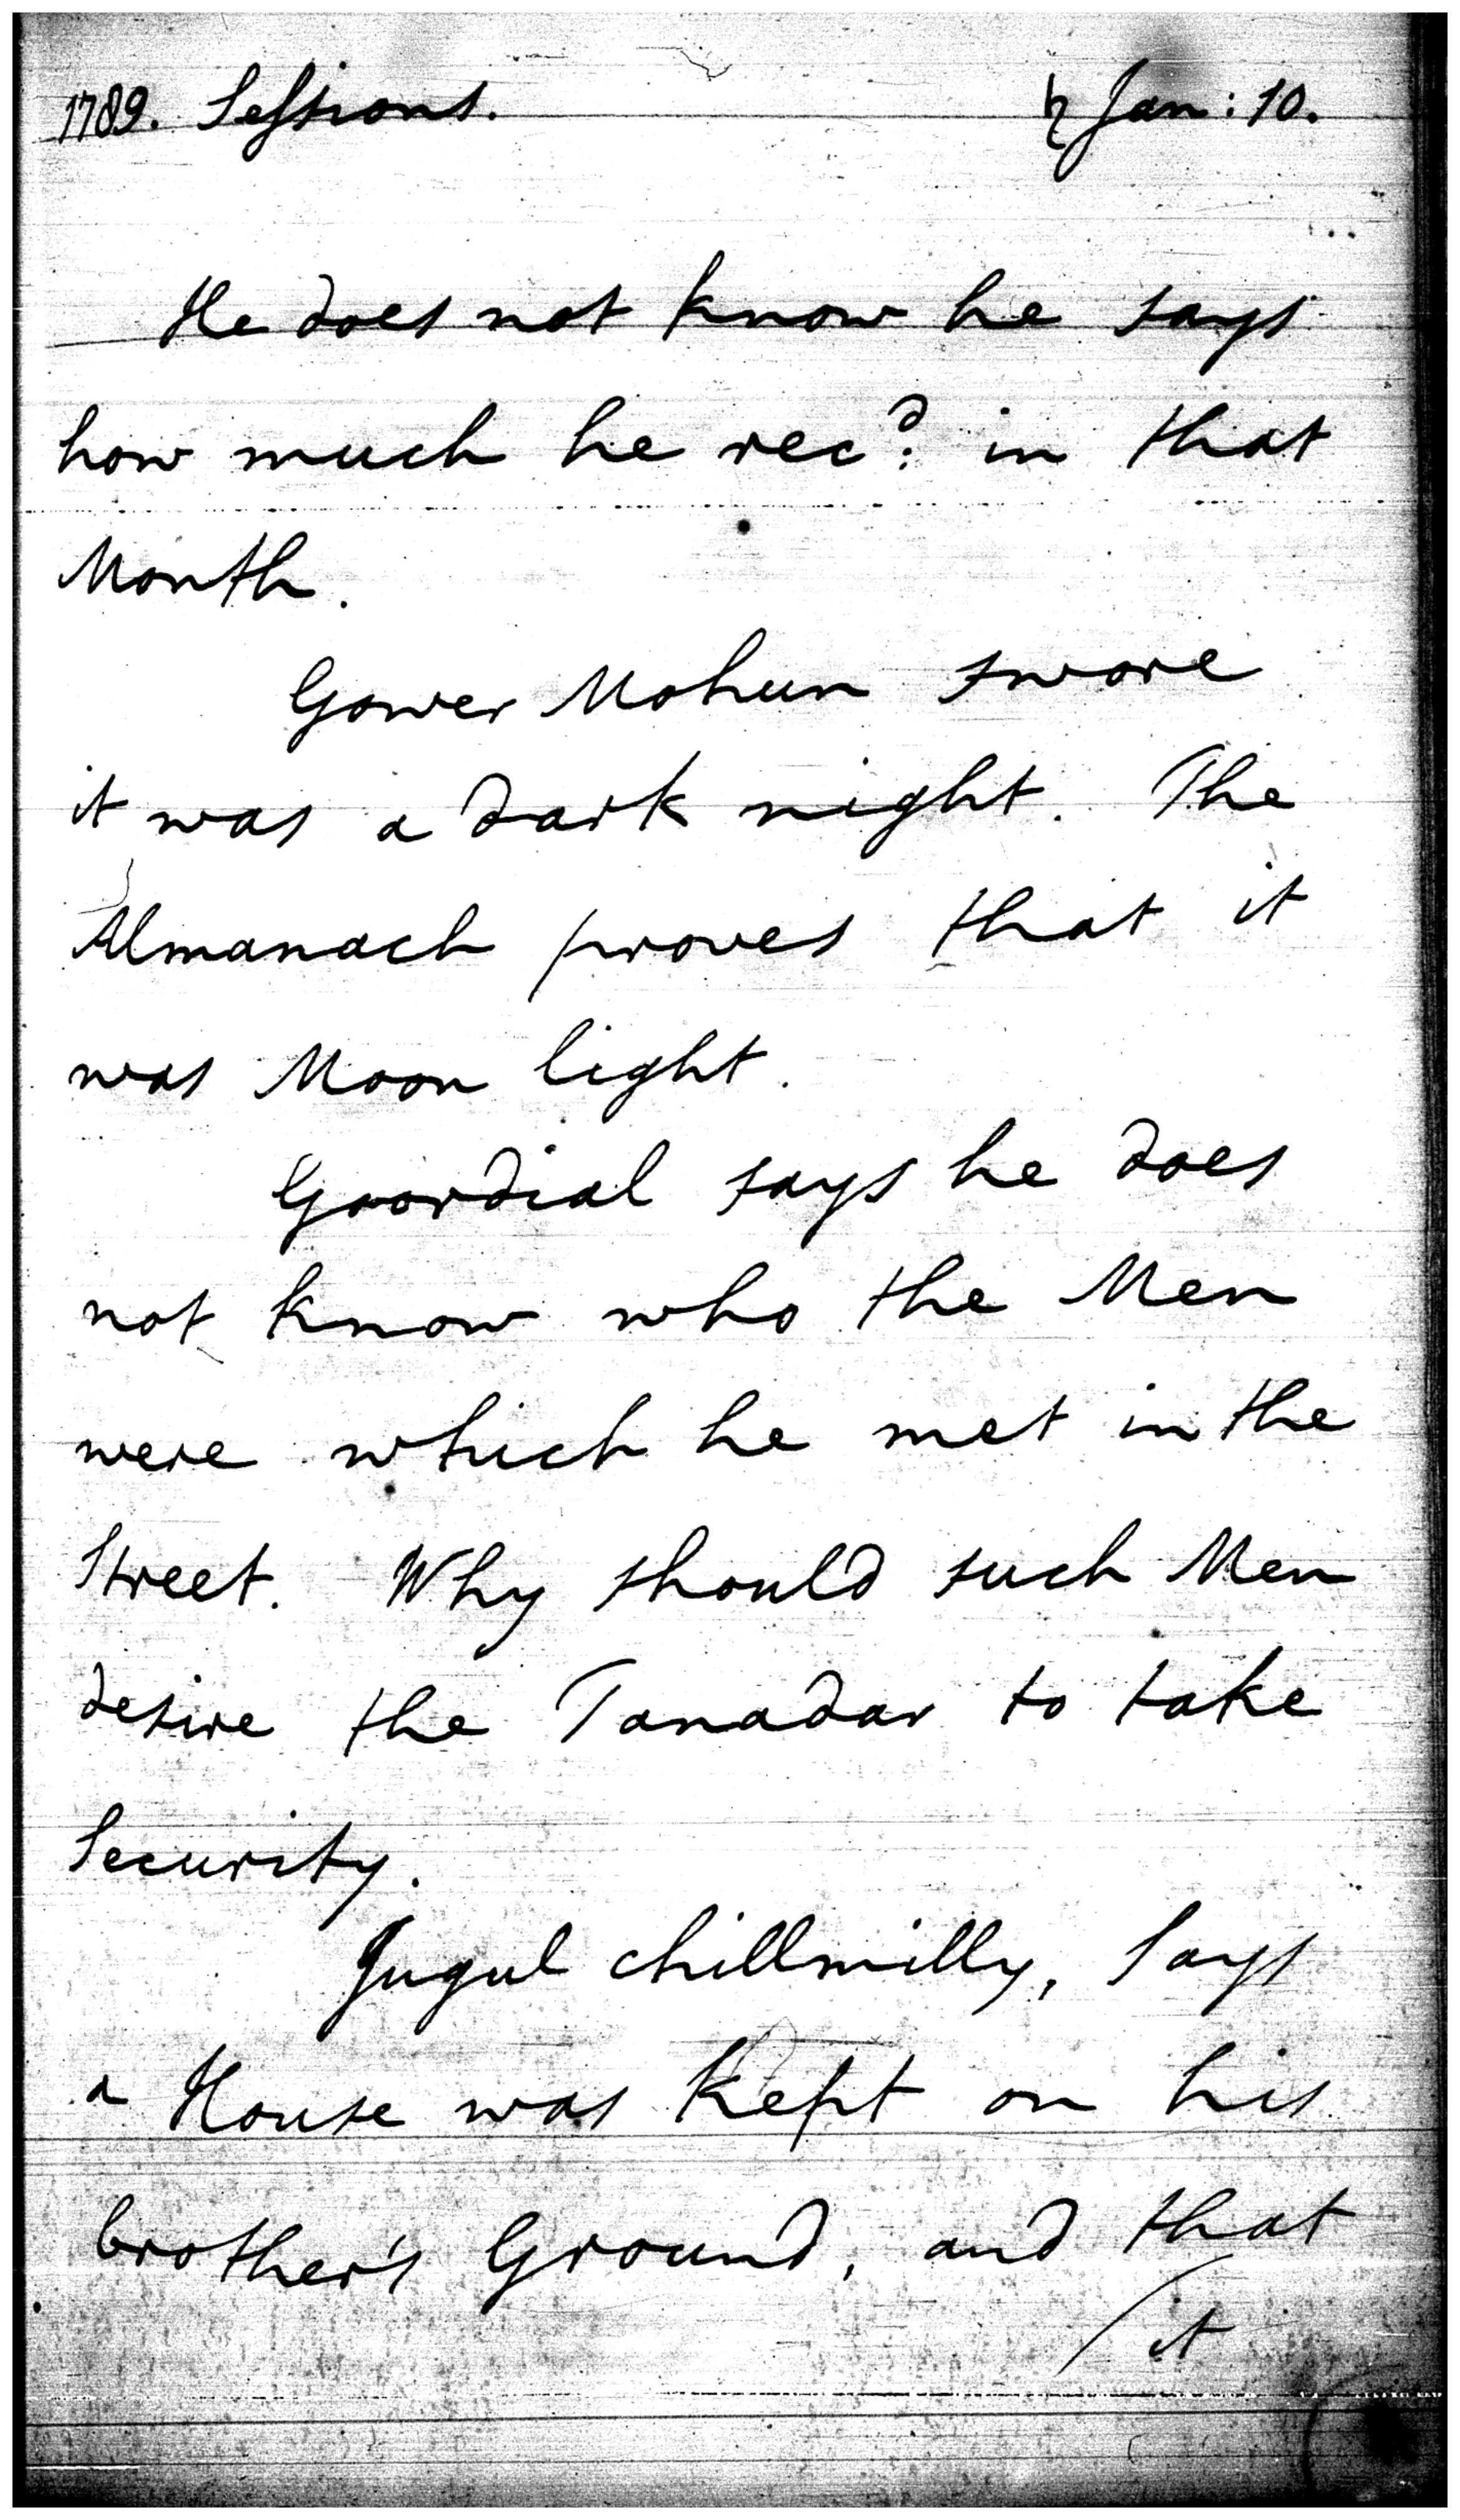 1789. Sessions. ♄ Jan: 10.
He does not know he says
how much he rec.d in that
Month.
Gower Mohun swore
it was a dark night. The
Almanach proves that it
was Moon light.
Goordial says he does
not know who the Men
were which he met in the
Street. Why should such Men
desire the Tanadar to take
Security.
Jugul chillmilly, Says
a House was kept on his
brother's Ground, and that
/ it